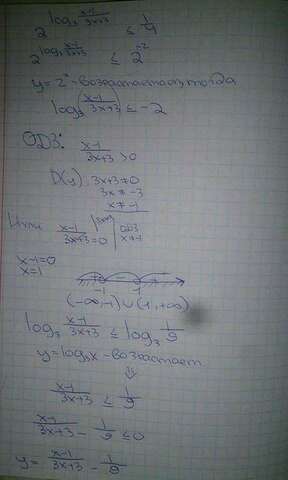 2^{log_3 \frac{x-1}{3x+3}} ≤ \frac{1}{4}
2^{log_3 \frac{x-1}{3x+3}} ≤ 2^{-2}
y=2^x - возрастает, тогда
log_3 (\frac{x-1}{3x+3}) ≤ -2
ОДЗ: \frac{x-1}{3x+3} > 0
D(y): 3x+3≠0
3x≠-3
x≠-1
Нули \frac{x-1}{3x+3} = 0 | ОДЗ x≠-1
x-1=0
x=1
-1 - 1
(-∞,-1)∪(1,+∞)
log_3 \frac{x-1}{3x+3} ≤ log_3 \frac{1}{9}
y=log_3 x - возрастает
⇓
\frac{x-1}{3x+3} ≤ \frac{1}{9}
\frac{x-1}{3x+3} - \frac{1}{9} ≤ 0
y = \frac{x-1}{3x+3} - \frac{1}{9}